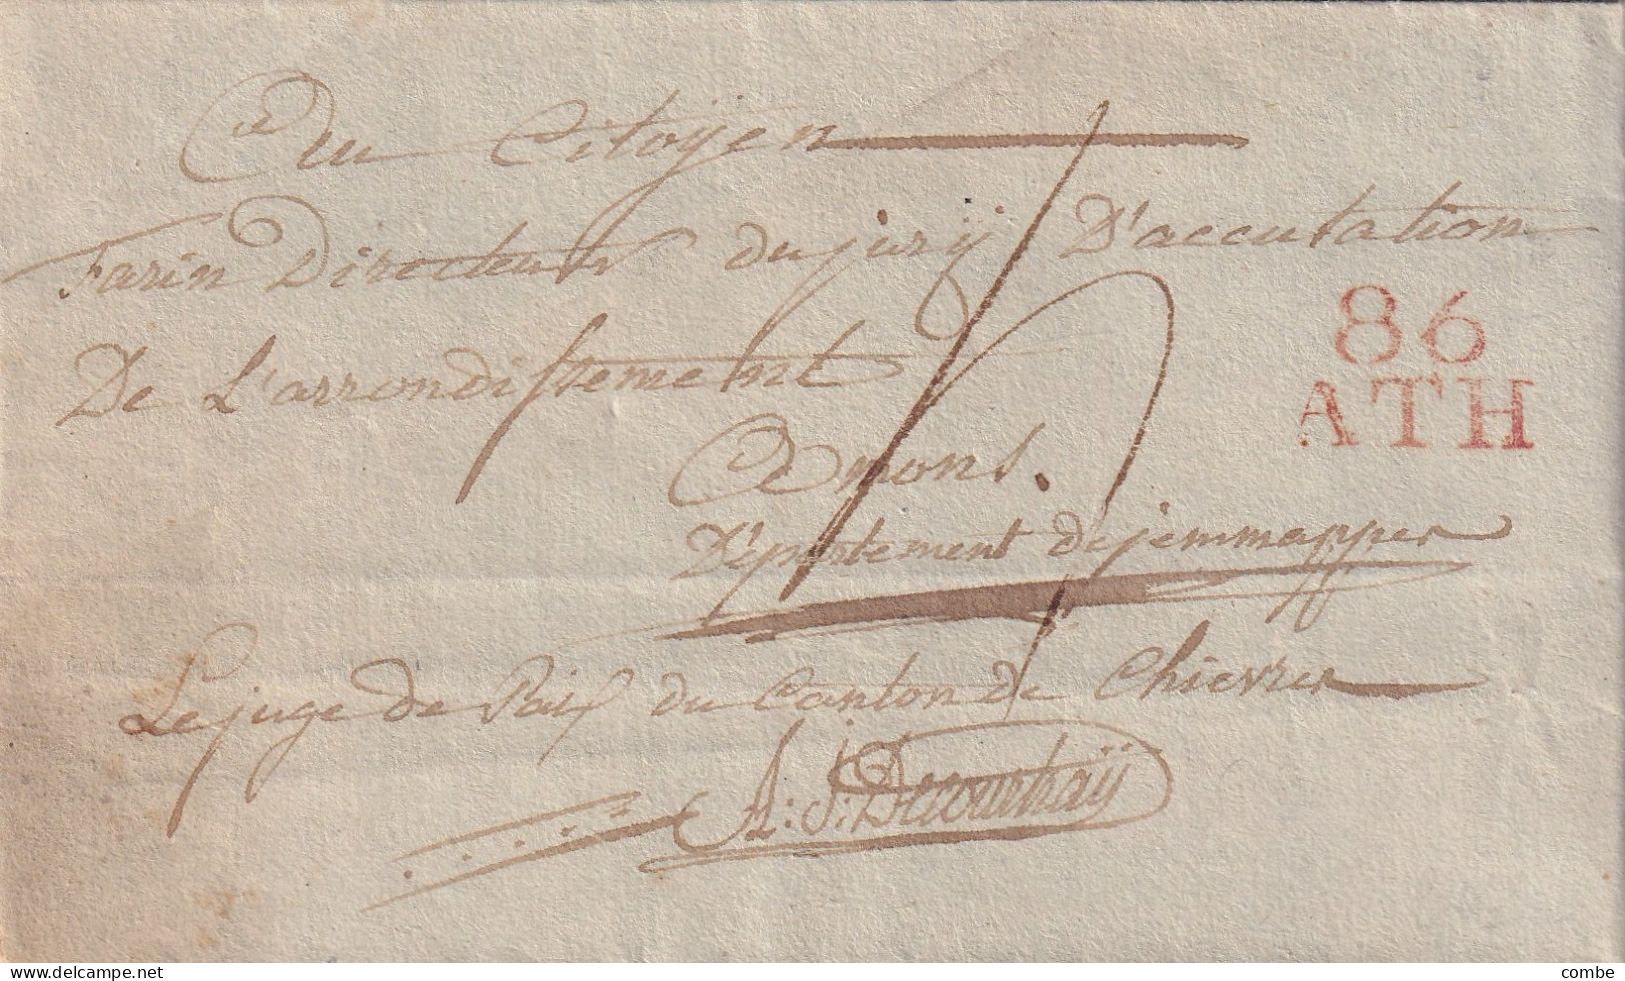 Au Citoÿen
Farin Directeur du jurÿ D'accusation
De L'arrondissement
De mons.
D'épartement de jemmappes
86
ATH
Le juge de Paix du Canton de Chievres
A: J: Decourtraÿ
© delcampe.net
combe